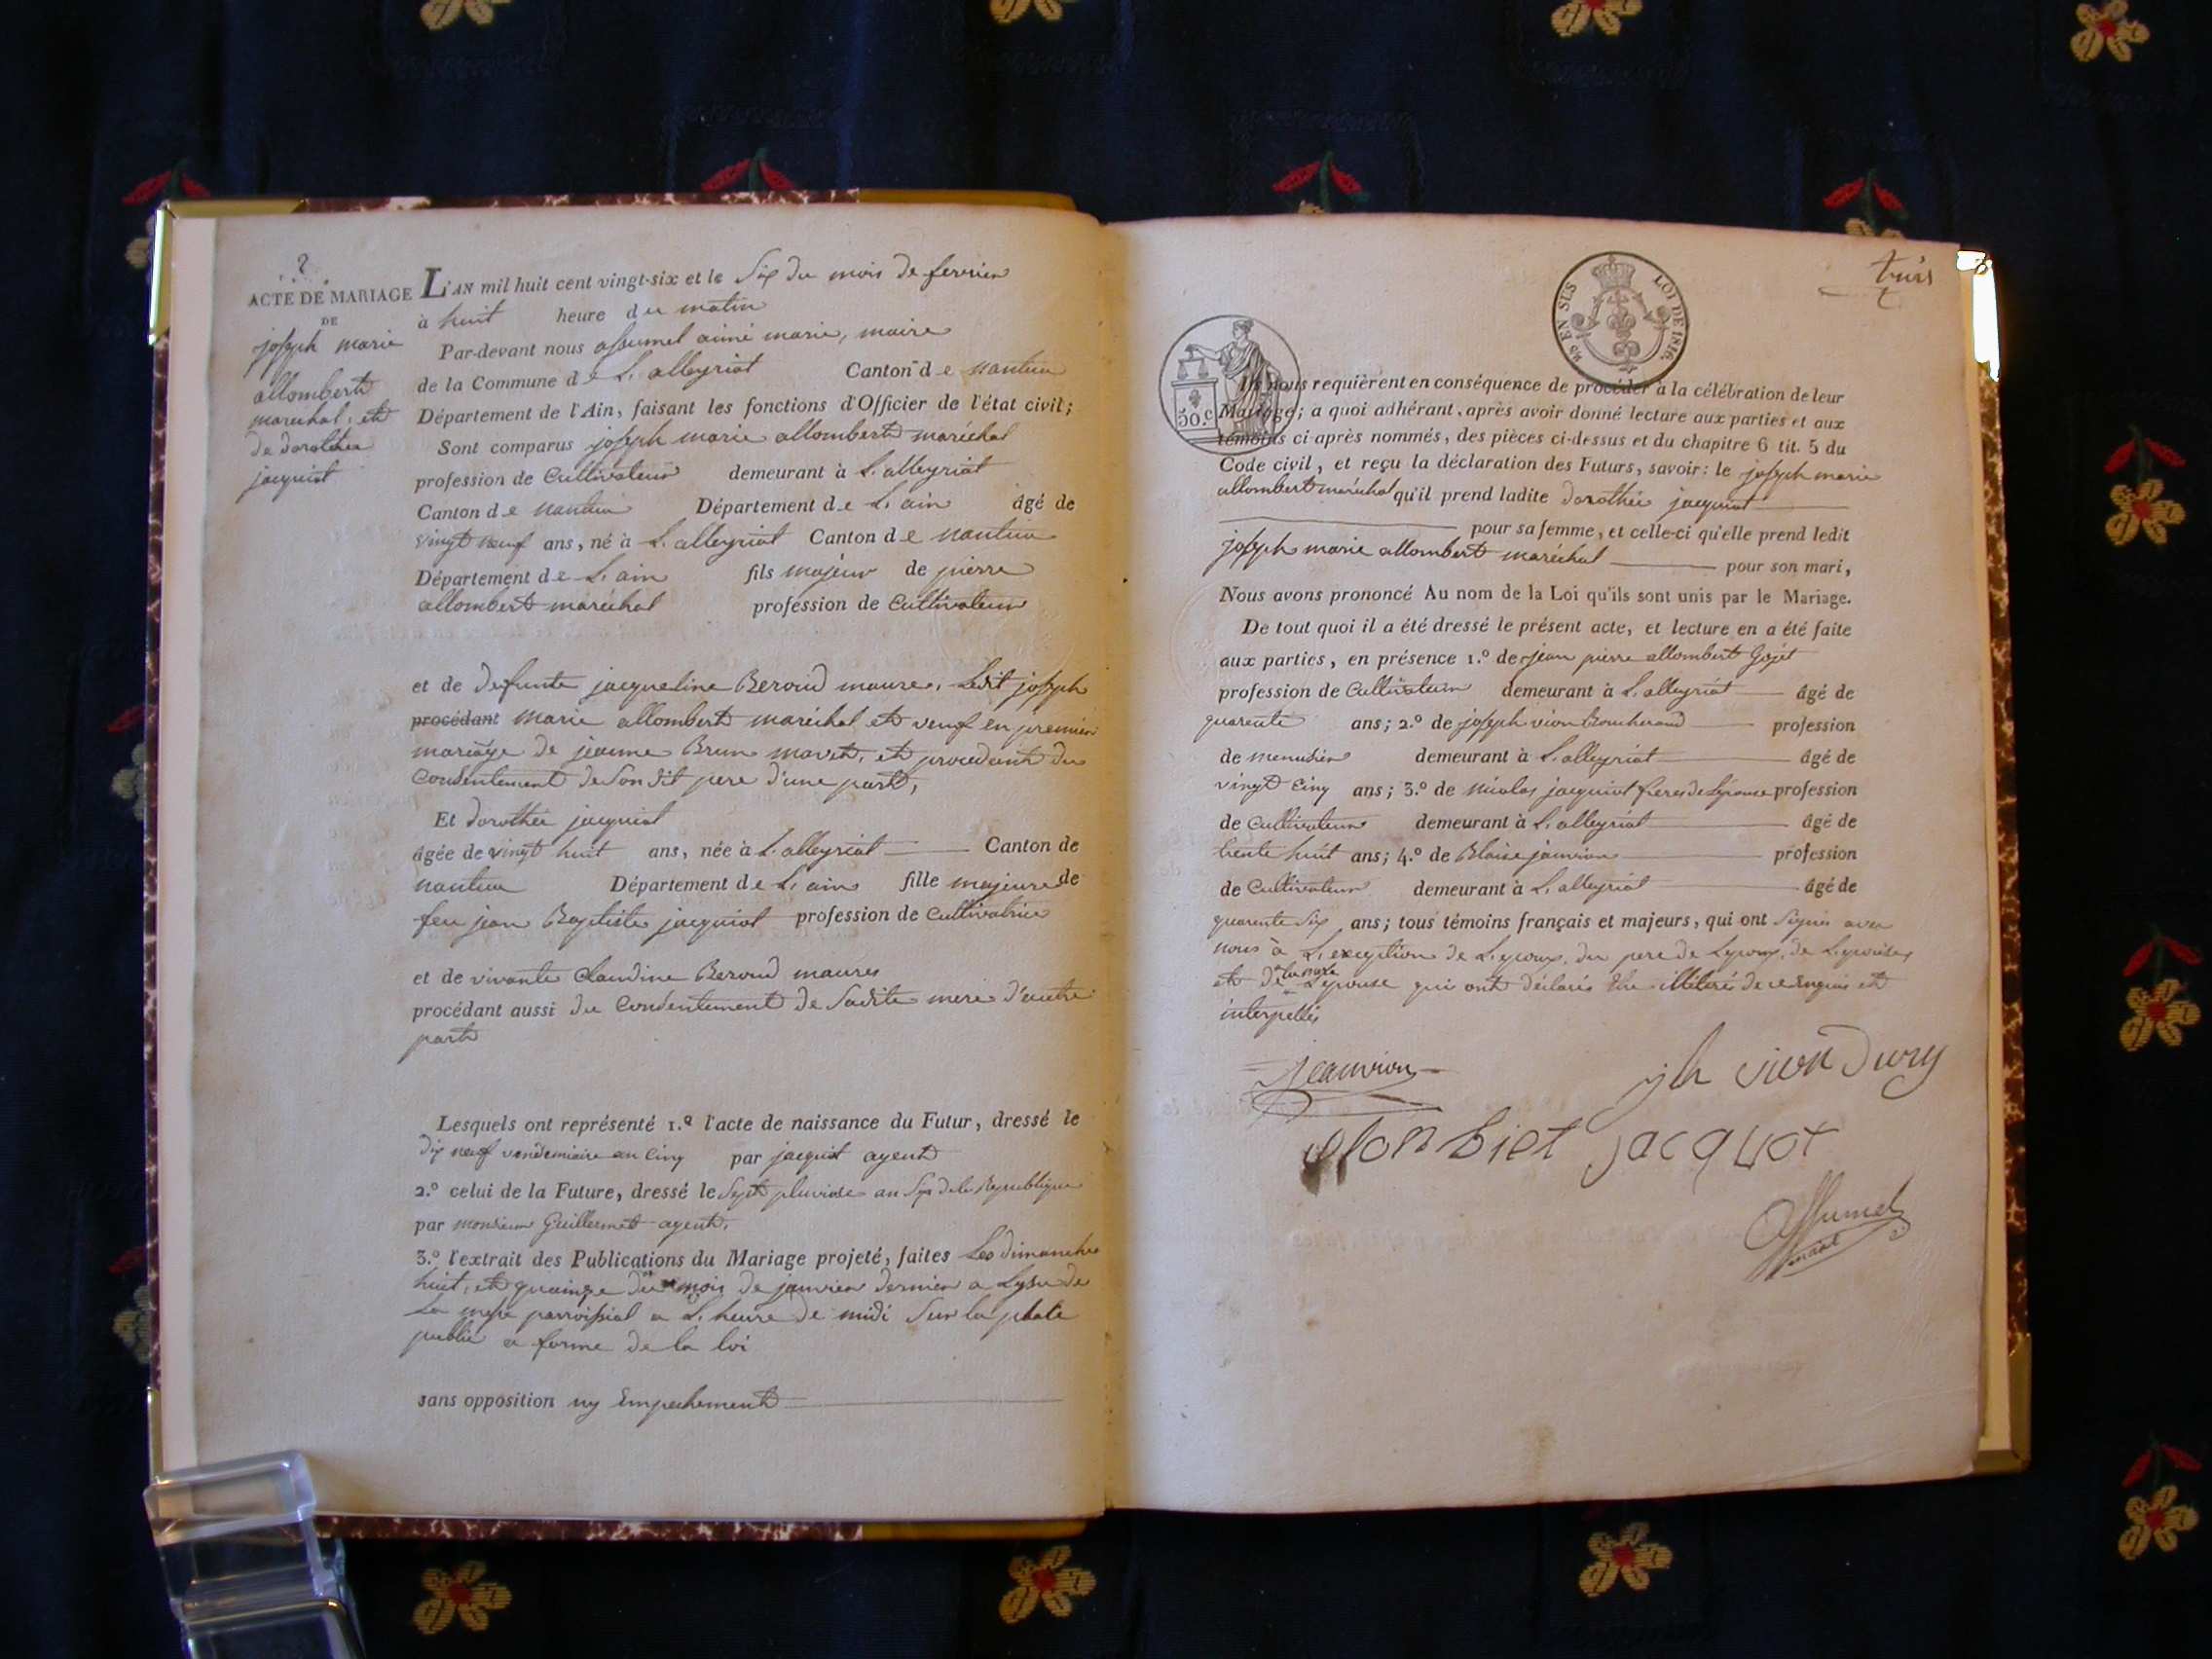 2
ACTE DE MARIAGE
DE
joseph marie
allombert
marechal, et
de dorothée
jacquiot
L'AN mil huit cent vingt-six et le Six du mois de fevrier
à huit heure du matin
Par-devant nous assumel aimé marie, maire
de la Commune de L. alleyriat Canton de nantua
Département de l'Ain, faisant les fonctions d'Officier de l'état civil;
Sont comparus joseph marie allombert maréchal
profession de Cultivateur demeurant à L. alleyriat
Canton de nantua Département de L. ain âgé de
vingt neuf ans, né à L. alleyriat Canton de nantua
Département de L. ain fils majeur de pierre
allombert maréchal profession de Cultivateur
et de defunte jacqueline Beroud maure, Ledit joseph
procédant marie allombert maréchal et veuf en premier
mariage de jeanne Brun mavet, et procedant du
Consentement de Son dit pere d'une part,
Et dorothée jacquiot
âgée de vingt huit ans, née à L. alleyriat Canton de
nantua Département de L. ain fille majeure de
feu jean Baptiste jacquiot profession de Cultivatrice
et de vivante Claudine Beroud maures
procédant aussi du Consentement de Sadite mere d'autre
part
Lesquels ont représenté 1.º l'acte de naissance du Futur, dressé le
dix neuf vendemiaire an Cinq par jacquiot agent
2.º celui de la Future, dressé le Sept pluviose an Six de la Republique
par monsieur Guillermet agent.
3.º l'extrait des Publications du Mariage projeté, faites Les dimanche
huit, et quainze du mois de janvier dernier a Lysu de
La messe parroissial a L. heure de midi Sur la plate
public a forme de la loi
sans opposition ny Empechement
trois
EN SUS
LOI DE 1816.
50.c
Ils nous requièrent en conséquence de procéder à la célébration de leur
Mariage; a quoi adhérant, après avoir donné lecture aux parties et aux
témoins ci-après nommés, des pièces ci-dessus et du chapitre 6 tit. 5 du
Code civil, et reçu la déclaration des Futurs, savoir: le joseph marie
allombert maréchal qu'il prend ladite dorothée jacquiot
pour sa femme, et celle-ci qu'elle prend ledit
joseph marie allombert maréchal pour son mari,
Nous avons prononcé Au nom de la Loi qu'ils sont unis par le Mariage.
De tout quoi il a été dressé le présent acte, et lecture en a été faite
aux parties, en présence 1.º de jean pierre allombert Gojet
profession de Cultivateur demeurant à L. alleyriat âgé de
quarente ans; 2.º de joseph vion profession
de menusier demeurant à L. alleyriat âgé de
vingt Cinq ans; 3.º de nicolas jacquiot frere de Lépouse profession
de Cultivateur demeurant à L. alleyriat âgé de
trente huit ans; 4.º de Blaise jeanvion profession
de Cultivateur demeurant à L. alleyriat âgé de
quarente Six ans; tous témoins français et majeurs, qui ont Signés avec
nous à L. exception de L. epoux, du pere de Lepoux, de L. epouse,
et de la mere Lepouse qui ont déclarés être illitérés de ce enquis et
interpellés
Jeanvion
jh vion Dury
alonbiet jacquot
Assumel
maire